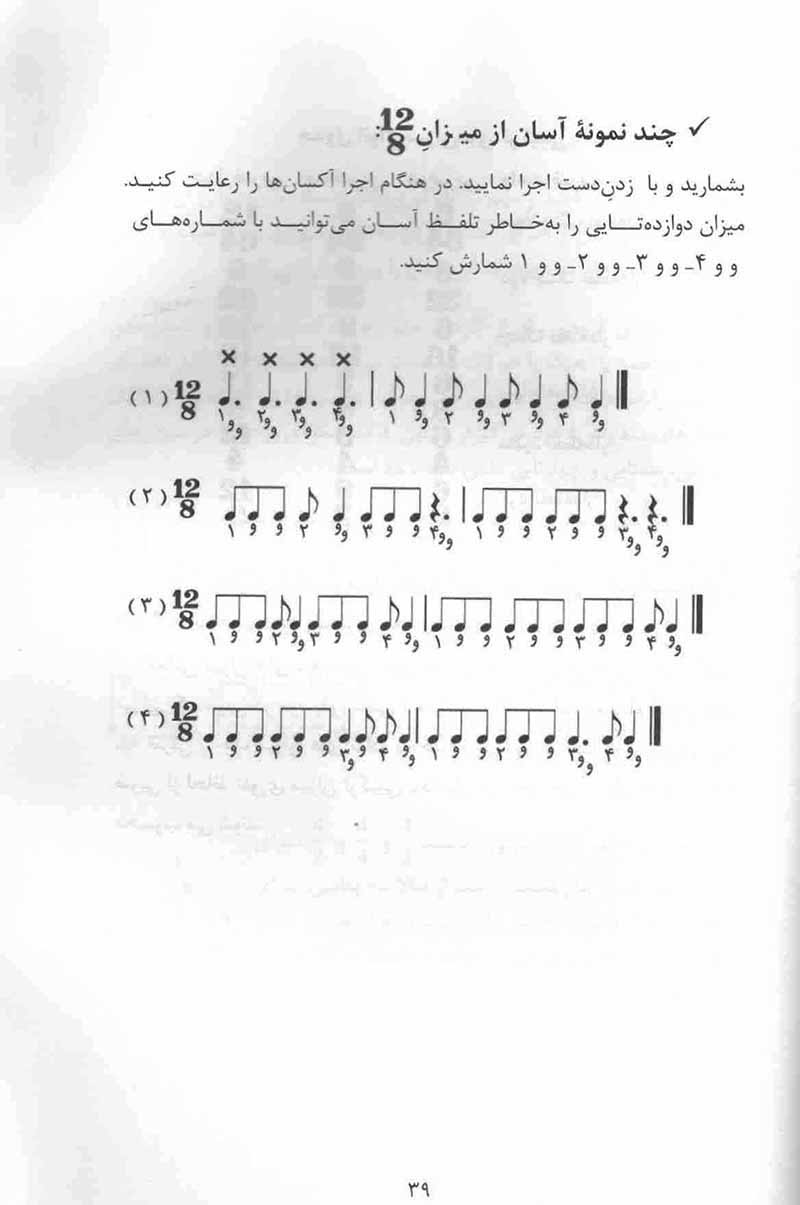 ✓ چند نمونهٔ آسان از میـزانِ 12/8:
بشمارید و با زدنِ دست اجرا نمایید. در هنگام اجرا آکسان‌ها را رعایت کنید.
میزان دوازده‌تـایی را به‌خـاطر تلفـظ آسـان می‌توانیـد با شمـاره‌هـای
و و ۴ـ و و ۳ـ و و ۲ـ و و ۱ شمارش کنید.
(۱) 12/8
۱وو ۲وو ۳وو ۴وو ۱ وو ۲ وو ۳ وو ۴ وو
(۲) 12/8
۱ و و ۲ وو ۳ و و ۴وو ۱ و و ۲ و و ۳وو ۴وو
(۳) 12/8
۱ و و ۲ وو ۳ و و ۴ وو ۱ و و ۲ و و ۳ و و ۴ وو
(۴) 12/8
۱ و و ۲ و و ۳وو ۴ وو ۱ و و ۲ و و ۳وو ۴ وو
۳۹